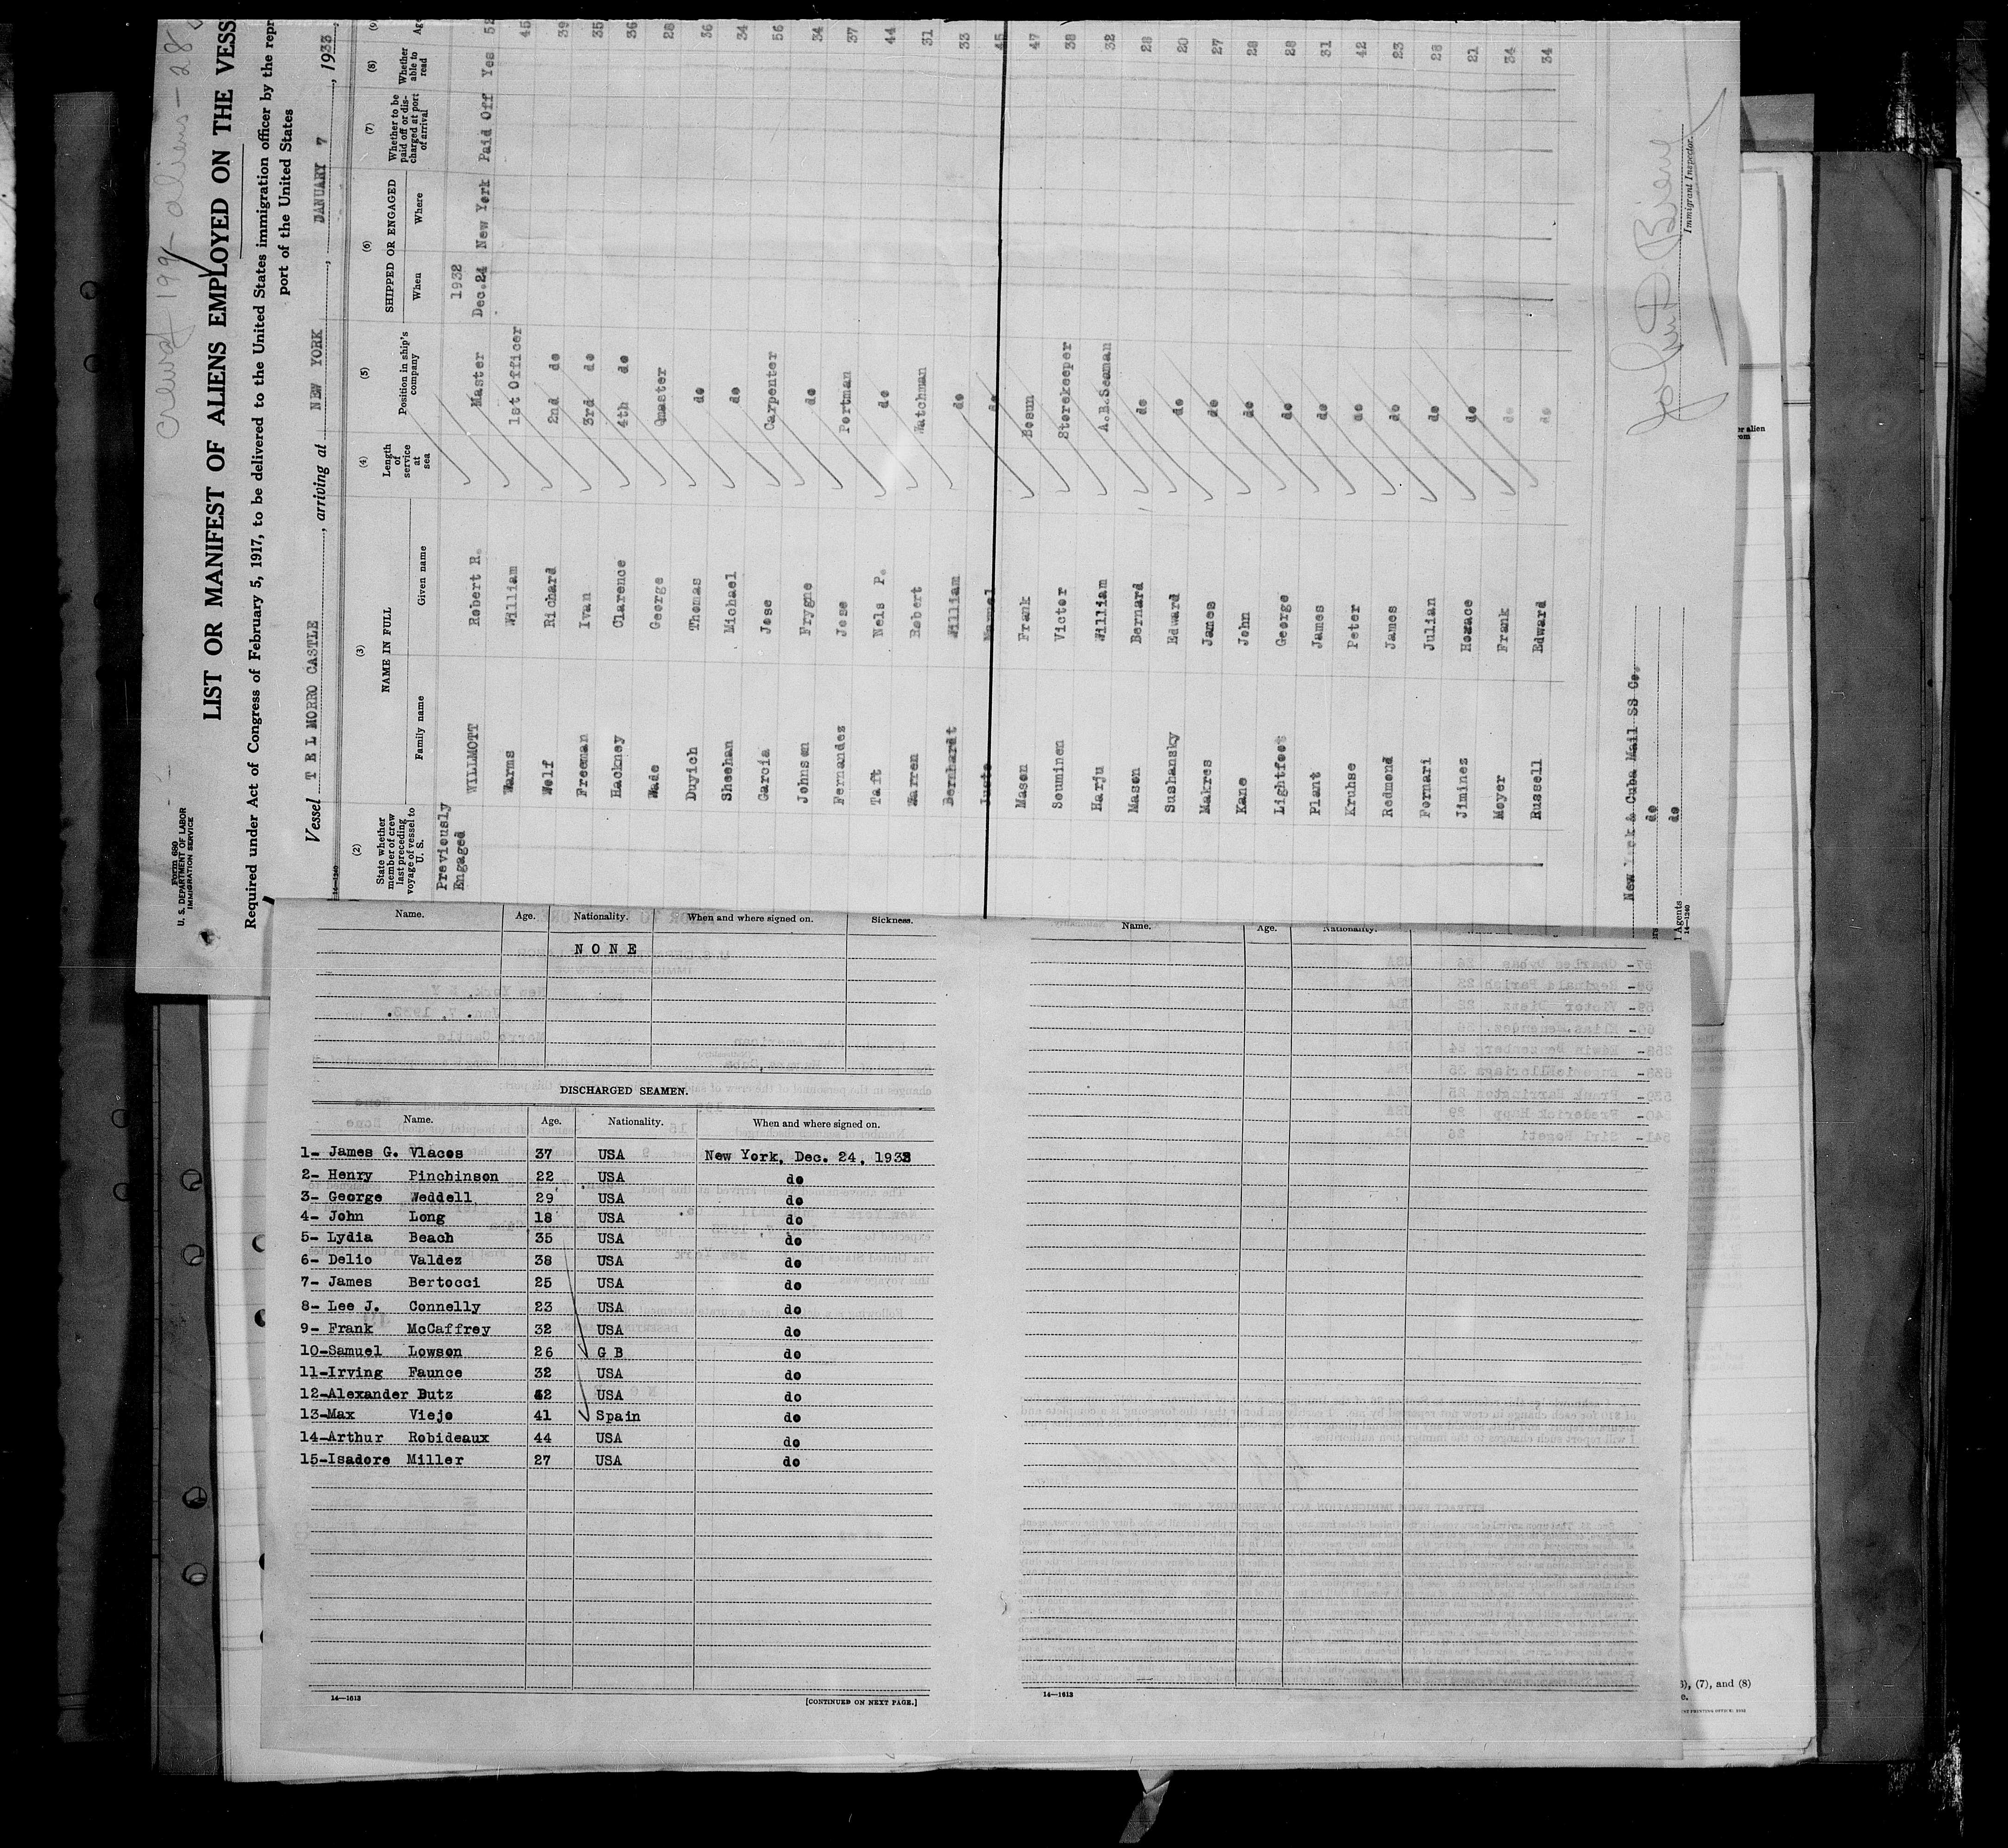 Crew of 199 - aliens - 28
Form 680
U. S. DEPARTMENT OF LABOR
IMMIGRATION SERVICE
LIST OR MANIFEST OF ALIENS EMPLOYED ON THE VESS
Required under Act of Congress of February 5, 1917, to be delivered to the United States immigration officer by the repr
port of the United States
Vessel T E L MORRO CASTLE, arriving at NEW YORK, JANUARY 7, 1933
14-1240
(2) (3) (4) (5) (6) (7) (8) (9)
State whether member of crew last preceding voyage of vessel to U. S.
NAME IN FULL
Family name Given name
Length of service at sea
Position in ship's company
SHIPPED OR ENGAGED
When Where
Whether to be paid off or discharged at port of arrival
Whether able to read
Ag
Previously
Engaged 1932
WILLMOTT Robert R. Master Dec.24 New York Paid Off Yes 52
Warms William 1st Officer 45
Wolf Richard 2nd do 39
Freeman Ivan 3rd do 35
Hackney Clarence 4th do 36
Wade George Qmaster 28
Duyich Thomas do 36
Sheehan Michael do 34
Garcia Jose Carpenter 56
Johnson Frygne do 34
Fernandez Jose Portman 37
Taft Nels P. do 44
Warren Robert Watchman 31
Bernhardt William do 33
Juste Manuel do 45
Mason Frank Bosun 47
Souminen Victor Storekeeper 38
Harju William A.B.Seaman 32
Mason Bernard do 28
Sushansky Edward do 20
Makres James do 27
Kane John do 28
Lightfoot George do 28
Plant James do 31
Kruhse Peter do 42
Redmond James do 23
Fornari Julian do 28
Jiminez Horace do 21
Meyer Frank do 34
Russell Edward do 34
New York & Cuba Mail SS Co.
do
do
Immigrant Inspector.
l Agents
14-1240
Name. Age. Nationality. When and where signed on. Sickness.
NONE
DISCHARGED SEAMEN.
Name. Age. Nationality. When and where signed on.
1- James G. Vlacos 37 USA New York, Dec. 24, 1932
2- Henry Pinchinson 22 USA do
3- George Weddell 29 USA do
4- John Long 18 USA do
5- Lydia Beach 35 USA do
6- Delio Valdez 38 USA do
7- James Bertocci 25 USA do
8- Lee J. Connelly 23 USA do
9- Frank McCaffrey 32 USA do
10-Samuel Lowson 26 G B do
11-Irving Faunce 32 USA do
12-Alexander Butz 42 USA do
13-Max Viejo 41 Spain do
14-Arthur Robideaux 44 USA do
15-Isadore Miller 27 USA do
14-1613
[CONTINUED ON NEXT PAGE.]
Name. Age. Nationality.
14-1613
er alien
rom
), (7), and (8)